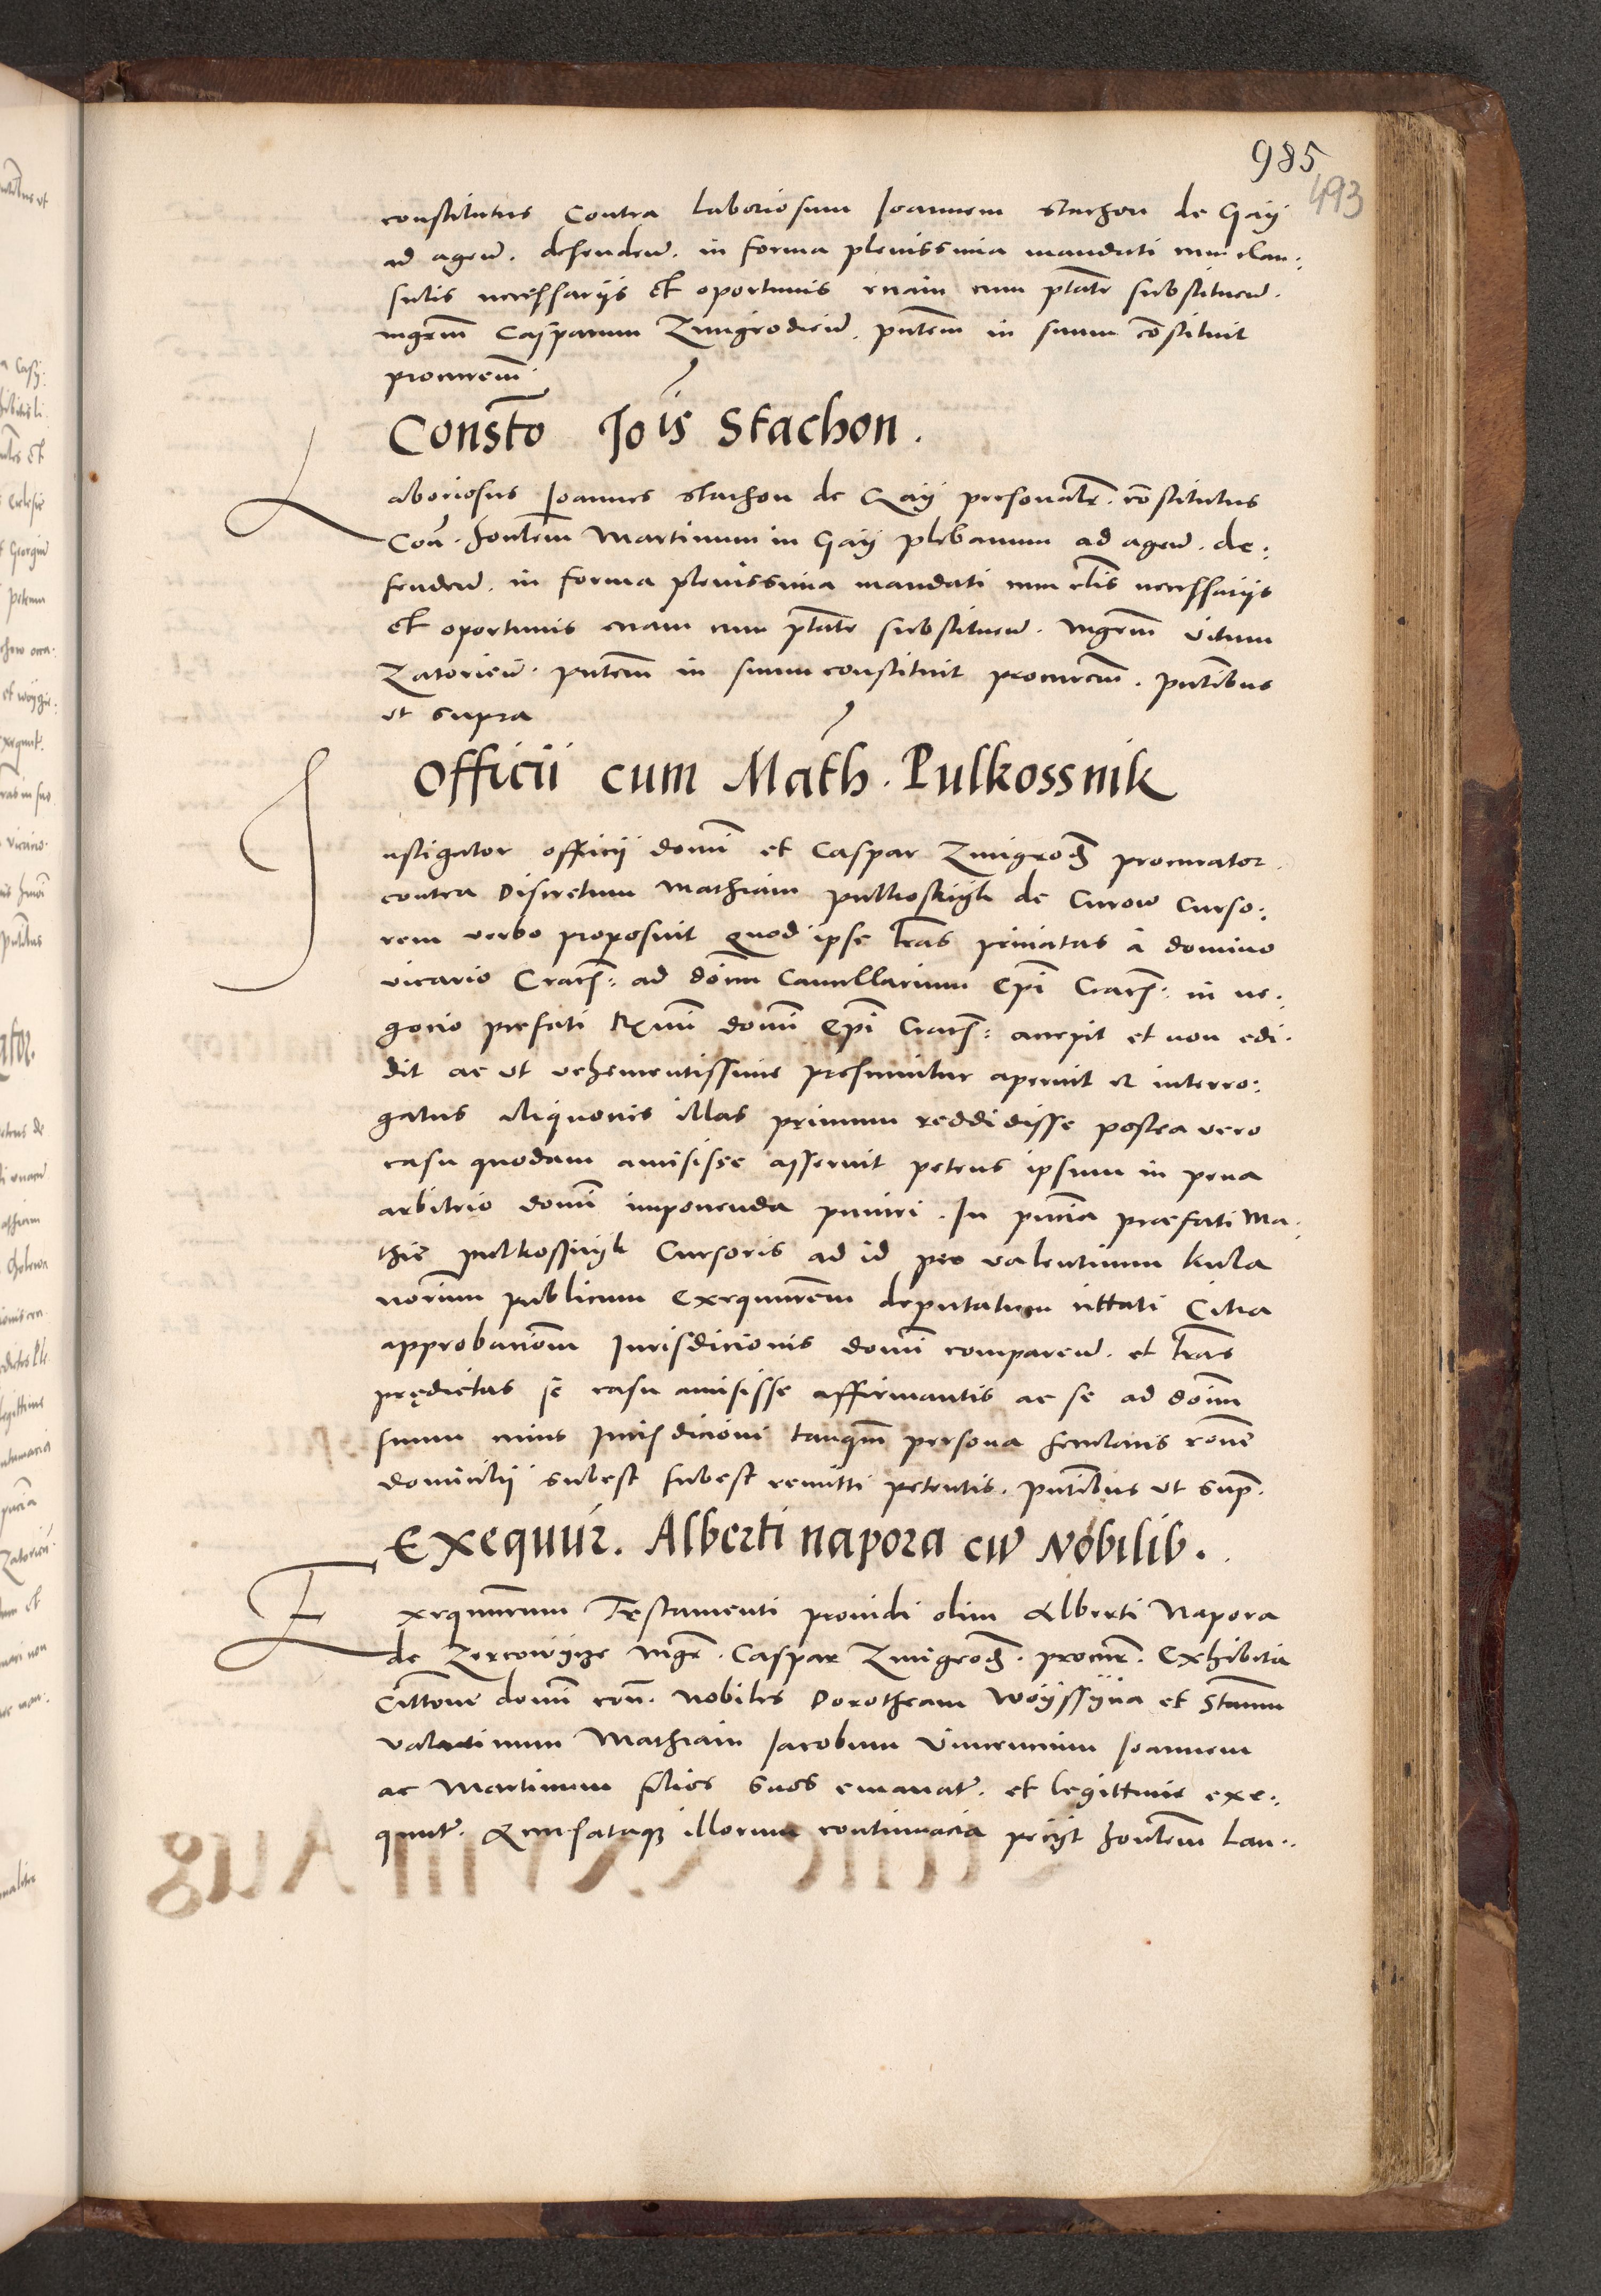 985
493
constitutus Contra Laboriosum Joannem Stachon de Gaÿ
ad agen̄. defenden̄. in forma plenissima mandati cum clau:
sulis necessarijs et oportunis eciam cum ptāte substituen̄.
mgr̄m Casparum Zmigrodien̄. pñtem in suum cōstituit
procurem̄.
Consto͞ Jois͞ Stachon.
Laboriosus Joannes Stachon de Gaÿ personalr̄. cōstitutus
Con̄. honlem̄ Martinum in Gaÿ plebanum ad agen̄. de:
fenden̄. in forma plenissima mandati cum clīs necessarijs
et oportunis eciam cum ptāte substituen̄. mgrm̄ vitum
Zatorien̄. pñtem in suum constituit procurem̄. pñtibus
ut supra
Officii cum Math. Pulkossnik
Instigator officij domī et Caspar Zmigrod̄ procurator.
contra Discretum Mathiam pulkosnÿk de Curow Curso:
rem verbo proposuit quod ipse lrās privatas a domino
vicario Cracn̄: ad dom̄ Cancellarium Epī Cracn̄: in ne:
gocio prefati Rmī domī Epī Cracn̄: accepit et non edi:
dit ac ut vehementissime presumitur aperuit et interro:
gatus aliquocies illas primum reddidisse postea vero
casu quodam amisisse asseruit petens ipsum in pena
arbitrio domī imponenda puniri. In pñcia præfati Ma:
thię pulkossnÿk Cursoris ad id per valentinum kula
norium publicum Exequurem̄ deputatum cittati Citra
approbaciom̄ Jurisdicionis domī comparen̄. et lrās
prędictas se casu amisisse affirmantis ac se ad dom̄
suum cuius Jurisdicioni tanqm̄ persona secularis rōne
domicilij subest subest remitti petentis. pñtibus ut sup̄.
Exequur. Alberti napora cū Nobilib.
Exequurum Testamenti providi olim Alberti Napora
de Zercowÿcze mgr̄. Caspar Zmigrod̄. procur̄. Exhibita
Cittōne domī con̄. Nobiles Dorotheam Woÿssÿna et Stanm̄
valentinum Mathiam Jacobum vincencium Joannem
ac Martinum filios suos emanat̄. et legittime exe:
quut̄. Accusataque illorum contumacia peciit honlem̄ Lau: